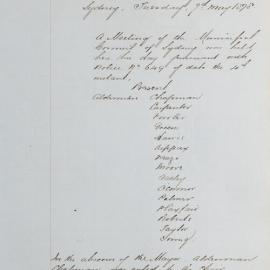 Sydney. Tuesday 7th May 1878
A Meeting of the Municipal
Council of Sydney was held
here this day pursuant
Notice of date the
instant,
Present
Aldermen Chapman
Carpenter
Fowler
Green
Hains
Hippax
Mays
Moore
Oconnor
Palmer
Playfair
Roberts
Taylor
Young
In the absence of the Mayor Alderman
Chapman was voted to the Chair